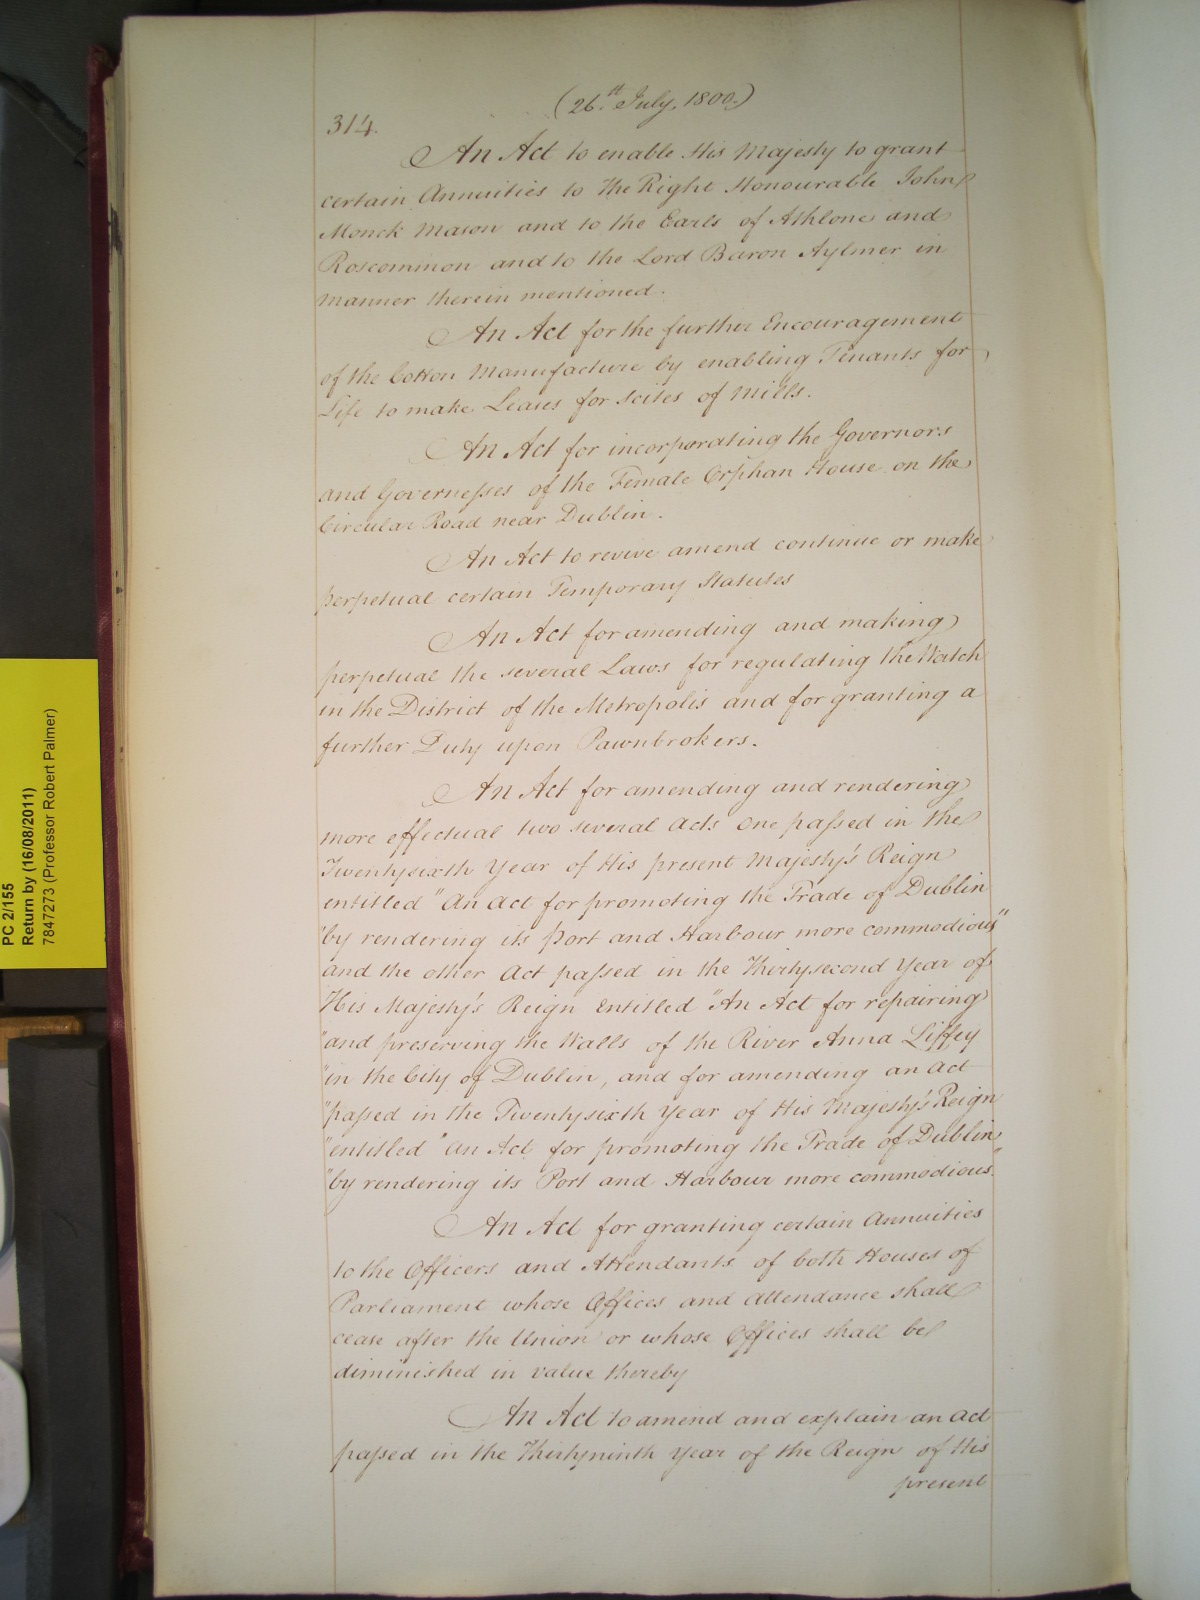 (26.th July, 1800.)
314.
An Act to enable His Majesty to grant
certain Annuities to the Right Honourable John
Monck Mason and to the Earls of Athlone and
Roscommon and to the Lord Baron Aylmer in
manner therein mentioned.
An Act for the further Encouragement
of the Cotton Manufacture by enabling Tenants for
Life to make Leases for Scites of Mills.
An Act for incorporating the Governors
and Governeſses of the Female Orphan House on the
Circular Road near Dublin.
An Act to revive amend continue or make
perpetual certain Temporary Statutes
An Act for amending and making
perpetual the several Laws for regulating the Watch
in the District of the Metropolis and for granting a
further Duty upon Pawnbrokers.
An Act for amending and rendering
more effectual two several Acts one paſsed in the
Twentysixth Year of His present Majesty's Reign
entitled "An Act for promoting the Trade of Dublin
"by rendering its Port and Harbour more commodious"
and the other Act paſsed in the Thirtysecond Year of
His Majesty's Reign entitled "An Act for repairing
"and preserving the Walls of the River Anna Liffey
"in the City of Dublin, and for amending an Act
"paſsed in the Twentysixth Year of His Majesty's Reign
"entitled "An Act for promoting the Trade of Dublin
"by rendering its Port and Harbour more commodious."
An Act for granting certain Annuities
to the Officers and Attendants of both Houses of
Parliament whose Offices and attendance shall
cease after the Union or whose Offices shall be
diminished in value thereby
An Act to amend and explain an Act
paſsed in the Thirtyninth Year of the Reign of His
present
PC 2/155
Return by (16/08/2011)
7847273 (Professor Robert Palmer)